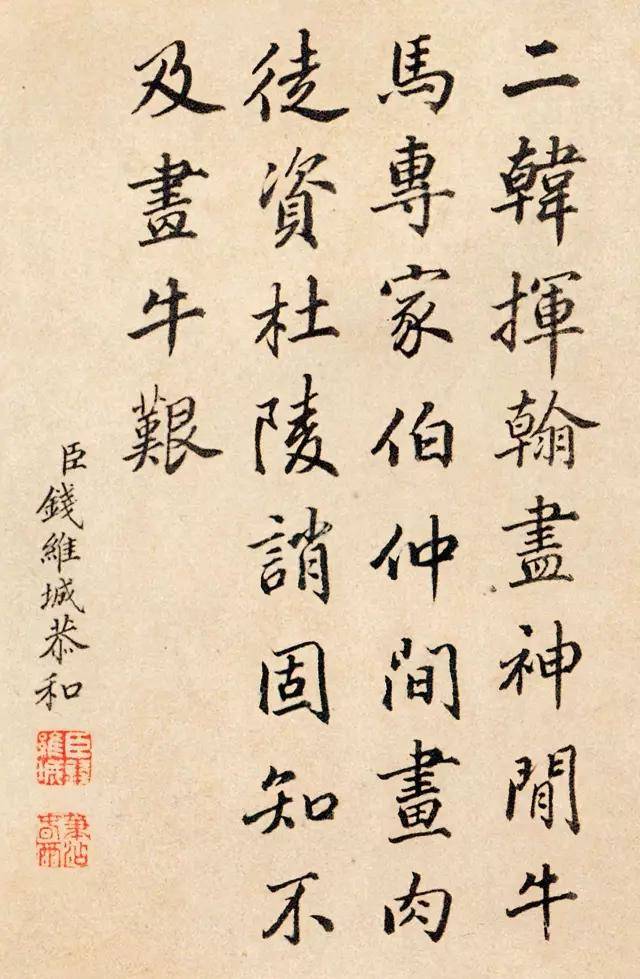 二韓揮翰盡神閒牛
馬專家伯仲間畫肉
徒資杜陵誚固知不
及畫牛艱
臣錢維城恭和
筆沾春雨